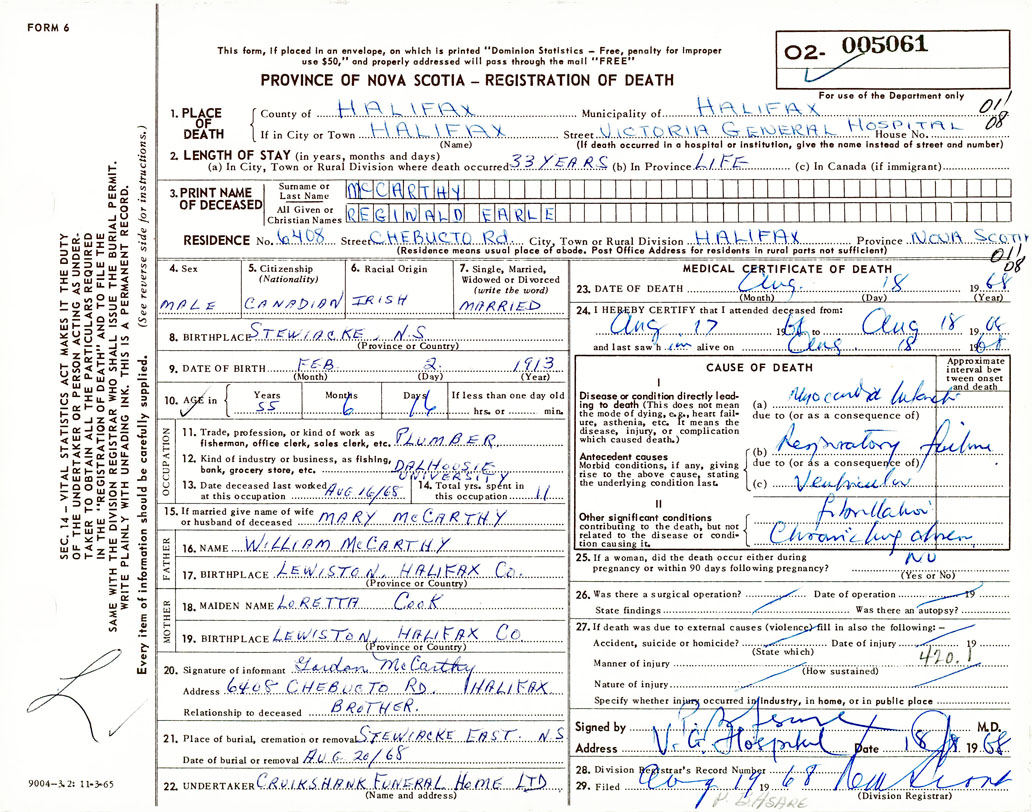 FORM 6
This form, if placed in an envelope, on which is printed "Dominion Statistics – Free, penalty for improper
use $50," and properly addressed will pass through the mail "FREE"
PROVINCE OF NOVA SCOTIA – REGISTRATION OF DEATH
O2- 005061
For use of the Department only
011
08
1. PLACE OF DEATH
County of HALIFAX Municipality of HALIFAX
If in City or Town HALIFAX Street VICTORIA GENERAL HOSPITAL House No.
(Name) (If death occurred in a hospital or institution, give the name instead of street and number)
2. LENGTH OF STAY (in years, months and days)
(a) In City, Town or Rural Division where death occurred 33 YEARS (b) In Province LIFE (c) In Canada (if immigrant)
3. PRINT NAME OF DECEASED
Surname or Last Name McCARTHY
All Given or Christian Names REGINALD EARLE
RESIDENCE No. 6408 Street CHEBUCTO Rd. City, Town or Rural Division HALIFAX Province NOVA SCOTIA
(Residence means usual place of abode. Post Office Address for residents in rural parts not sufficient)
011
08
4. Sex
MALE
5. Citizenship (Nationality)
CANADIAN
6. Racial Origin
IRISH
7. Single, Married, Widowed or Divorced (write the word)
MARRIED
8. BIRTHPLACE STEWIACKE, N.S
(Province or Country)
9. DATE OF BIRTH FEB. 2. 1913
(Month) (Day) (Year)
10. AGE in Years 55 Months 6 Days 16 If less than one day old
hrs. or min.
OCCUPATION
11. Trade, profession, or kind of work as
fisherman, office clerk, sales clerk, etc. PLUMBER
12. Kind of industry or business, as fishing,
bank, grocery store, etc. DALHOUSIE UNIVERSITY
13. Date deceased last worked
at this occupation AUG 16/68
14. Total yrs. spent in
this occupation 11
15. If married give name of wife
or husband of deceased MARY McCARTHY
FATHER
16. NAME WILLIAM McCARTHY
17. BIRTHPLACE LEWISTON, HALIFAX Co.
(Province or Country)
MOTHER
18. MAIDEN NAME LORETTA COOK
19. BIRTHPLACE LEWISTON, HALIFAX Co
(Province or Country)
20. Signature of informant Gordon McCarthy
Address 6408 CHEBUCTO RD. HALIFAX
Relationship to deceased BROTHER.
21. Place of burial, cremation or removal STEWIACKE EAST. N.S
Date of burial or removal AUG 20/68
22. UNDERTAKER CRUIKSHANK FUNERAL HOME LTD
(Name and address)
MEDICAL CERTIFICATE OF DEATH
23. DATE OF DEATH Aug. 18 1968
(Month) (Day) (Year)
24. I HEREBY CERTIFY that I attended deceased from:
Aug 17 1968 to Aug 18 1968
and last saw him alive on Aug 18 1968
CAUSE OF DEATH
Approximate interval between onset and death
I
Disease or condition directly leading
to death (This does not mean
the mode of dying, e.g., heart failure,
asthenia, etc. It means the
disease, injury, or complication
which caused death.)
(a) Myocardial Infarct
due to (or as a consequence of)
Antecedent causes
Morbid conditions, if any, giving
rise to the above cause, stating
the underlying condition last.
(b) Respiratory failure
due to (or as a consequence of)
(c) Ventricular
fibrillation
II
Other significant conditions
contributing to the death, but not
related to the disease or condition
causing it.
Chronic lung disease
25. If a woman, did the death occur either during
pregnancy or within 90 days following pregnancy? NO
(Yes or No)
26. Was there a surgical operation? Date of operation 19
State findings Was there an autopsy?
27. If death was due to external causes (violence) fill in also the following: –
Accident, suicide or homicide? Date of injury 19
(State which)
420.1
Manner of injury
(How sustained)
Nature of injury
Specify whether injury occurred in industry, in home, or in public place
Signed by M.D.
Address V. G. Hospital Date 18/8 1968
28. Division Registrar's Record Number
29. Filed Aug 19 1968
(Division Registrar)
P B ASARE
SEC. 14 – VITAL STATISTICS ACT MAKES IT THE DUTY
OF THE UNDERTAKER OR PERSON ACTING AS UNDER-
TAKER TO OBTAIN ALL THE PARTICULARS REQUIRED
IN THE "REGISTRATION OF DEATH" AND TO FILE THE
SAME WITH THE DIVISION REGISTRAR WHO SHALL ISSUE THE BURIAL PERMIT.
WRITE PLAINLY WITH UNFADING INK. THIS IS A PERMANENT RECORD.
Every item of information should be carefully supplied. (See reverse side for instructions.)
9004-3.2: 11-3-65